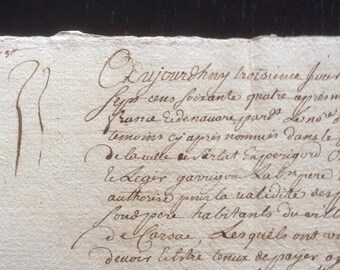 Aujourdhuy troisieme jour
sept cens soixante quatre apres m
france et de navarre par dt le no.re
temoins cy apres nommés dans le
de la ville de Sarlat en perigord
de Leger garrigou Lab
authorisé pour la validité des p
son pere habitants du vill
de Carsac, Lesquels ont
devoir et être tenus de payer a